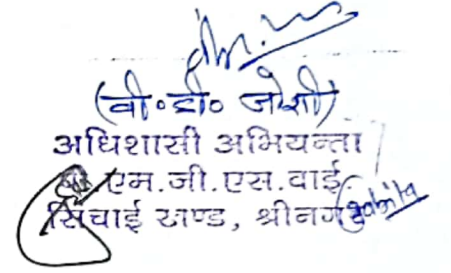 (वी० डी० जोशी)
अधिशासी अभियन्ता
एम.जी.एस.वाई.
सिंचाई खण्ड, श्रीनगर